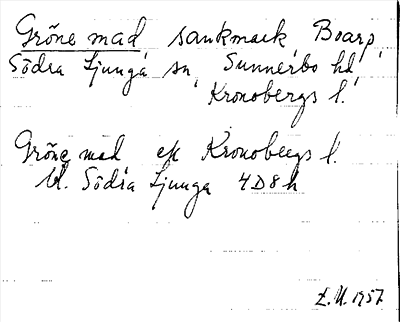 Gröne mad, sankmark, Boarp,
Södra Ljunga sn, Sunnerbo hd,
Kronobergs l.
Gröne mad ek Kronobergs l.
bl. Södra Ljunga 4D8h
E.U. 1957.